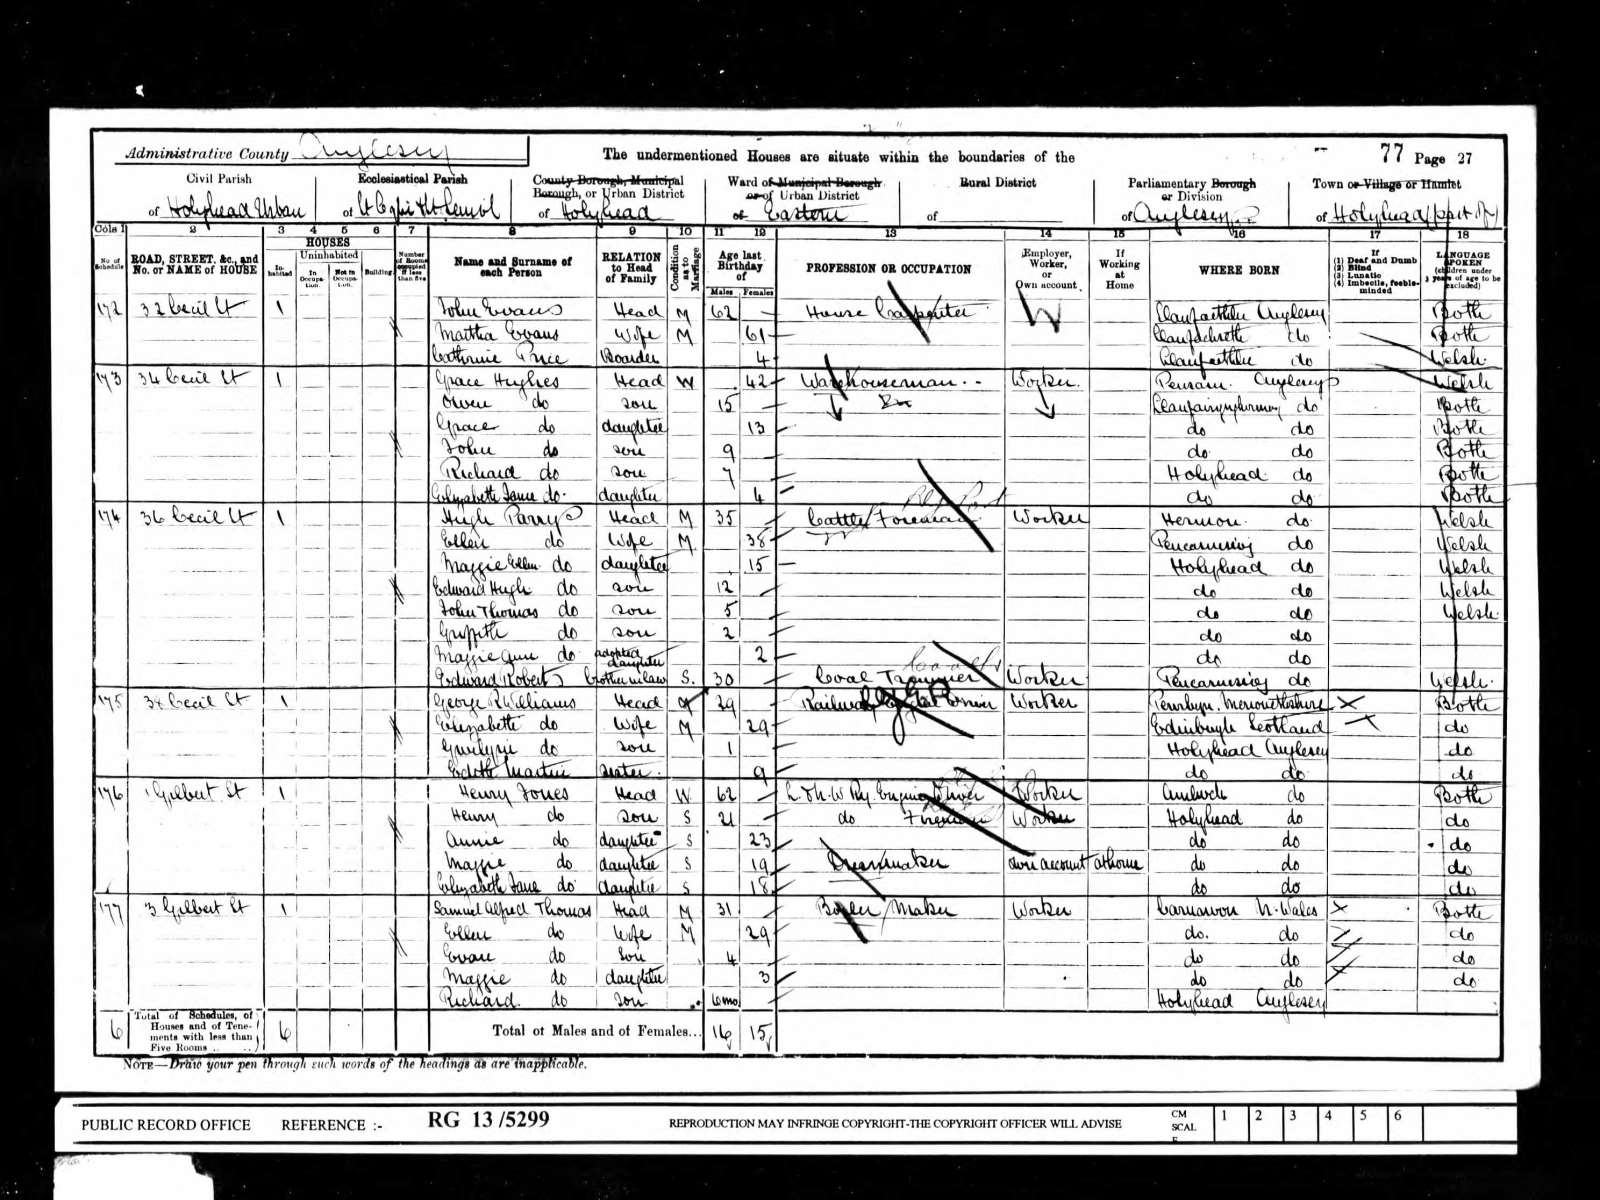 Administrative County Anglesey
The undermentioned Houses are situate within the boundaries of the
77 Page 27
Civil Parish
of Holyhead Urban
Ecclesiastical Parish
of
County Borough, Municipal
Borough, or Urban District
of Holyhead
Ward of Municipal Borough
or of Urban District
of Eastern
Rural District
of
Parliamentary Borough
or Division
of Anglesey
Town or Village or Hamlet
of Holyhead (part of)
Cols 1 2 3 4 5 6 7 8 9 10 11 12 13 14 15 16 17 18
No. of Schedule
ROAD, STREET, &c., and No. or NAME of HOUSE
HOUSES
Inhabited
Uninhabited
In Occupation.
Not in Occupation.
Building
Number of Rooms occupied if less than five
Name and Surname of each Person
RELATION to Head of Family
Condition as to Marriage
Age last Birthday of
Males Females
PROFESSION OR OCCUPATION
Employer, Worker, or Own account
If Working at Home
WHERE BORN
If
(1) Deaf and Dumb
(2) Blind
(3) Lunatic
(4) Imbecile, feeble-minded
LANGUAGE SPOKEN (children under 3 years of age to be excluded)
172 32 Cecil St 1 John Evans Head M 62 House Carpenter W Llanfaethlu Anglesey Both
Martha Evans Wife M 61 do Both
Catherine Price Boarder 4 Llanfaethlu do Welsh
173 34 Cecil St 1 Grace Hughes Head W 42 Warehouseman Worker Anglesey Welsh
Owen do son 15 do Both
Grace do daughter 13 do do Both
John do son 9 do do Both
Richard do son 7 Holyhead do Both
Elizabeth Jane do daughter 4 do do Both
174 36 Cecil St 1 Hugh Parry Head M 35 Cattle Foreman Worker Hermon do Welsh
Ellen do Wife M 38 do Welsh
Maggie Ellen do daughter 15 Holyhead do Welsh
Edward Hugh do son 12 do do Welsh
John Thomas do son 5 do do Welsh
Griffith do son 2 do do
Maggie Ann do adopted daughter 2 do do
Edward Roberts brother in law S. 30 Coal Trimmer Worker do Welsh
175 38 Cecil St 1 George R Williams Head 29 Railway Worker Merionethshire Both
Elizabeth do Wife M 29 Edinburgh Scotland do
Gwilym do son 1 Holyhead Anglesey do
Edith Martin sister 9 do do do
176 1 Gilbert St 1 Henry Jones Head W 62 L. & N. W Ry Engine Driver Worker Amlwch do Both
Henry do son S 21 do Fireman Worker Holyhead do do
Annie do daughter S 23 do do do
Maggie do daughter S 19 Dressmaker own account at home do do do
Elizabeth Jane do daughter S 18 do do do
177 3 Gilbert St 1 Samuel Alfred Thomas Head M 31 Boiler Maker Worker Carnarvon N. Wales Both
Ellen do Wife M 29 do. do do
Evan do Son 4 do do do
Maggie do daughter 3 do do do
Richard do son 6 mo Holyhead Anglesey
6 Total of Schedules, of Houses and of Tenements with less than Five Rooms 6 Total of Males and of Females... 16 15
NOTE—Draw your pen through such words of the headings as are inapplicable.
PUBLIC RECORD OFFICE REFERENCE :- RG 13/5299 REPRODUCTION MAY INFRINGE COPYRIGHT-THE COPYRIGHT OFFICER WILL ADVISE
CM SCALE 1 2 3 4 5 6